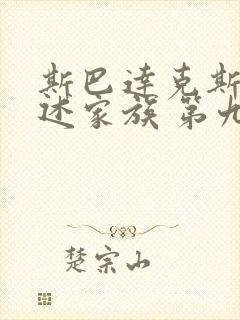 斯巴达克斯
述家族 第九
楚宗山